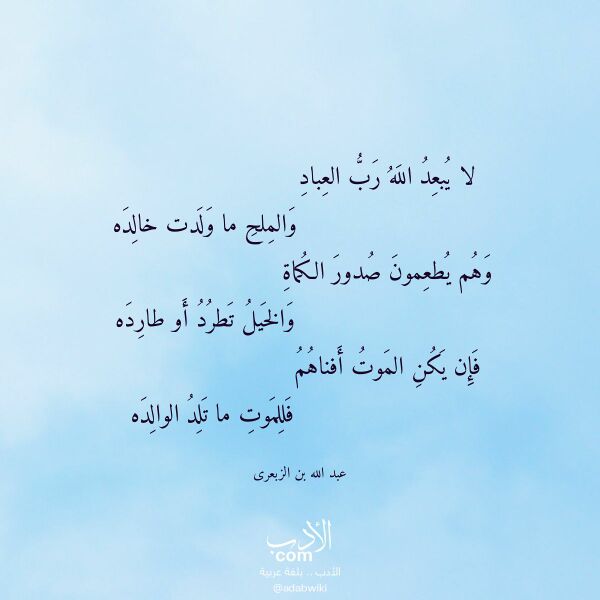 لا يُبعِدُ اللَهُ رَبُّ العِبادِ
وَالمِلحِ ما وَلَدَت خالِدَه
وَهُم يُطعِمونَ صُدورَ الكُماةِ
وَالخَيلُ تَطرُدُ أَو طارِدَه
فَإِن يَكُنِ المَوتُ أَفناهُمُ
فَلِلمَوتِ ما تَلِدُ الوالِدَه
عبد الله بن الزبعرى
الأدب
com
الأدب .. بلغة عربية
@adabwiki